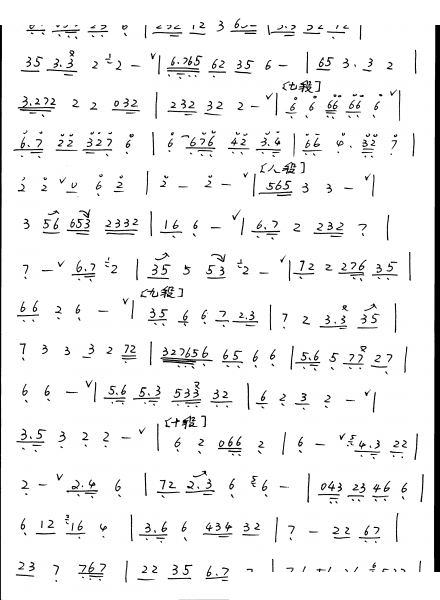 35 3.3 2 2 - | 6.765 62 35 6 - | 65 3.3 2
[九段]
3.272 2 2 032 | 232 32 2 - | 6 6 66 66 6 |
6.7 22 327 6 | 6 676 42 3.4 | 66 4. 32 7 |
[八段]
2 2 0 6 2 | 2 - 2 - | 565 3 3 - |
3 56 653 2332 | 16 6 - | 6.7 2 232 7 |
7 - 6.7 2 | 35 5 53 2 - | 72 2 276 35 |
[九段]
66 2 6 - | 35 6 6 7 2.3 | 7 2 3.3 35 |
7 3 3 3 2 72 | 327656 65 6 6 | 5.6 5 77 27 |
6 6 - | 5.6 5.3 533 32 | 6 2 3 2 - |
[十段]
3.5 3 2 2 - | 6 2 066 2 | 6 - 4.3 22 |
2 - 2.4 6 | 72 2.3 6 6 - | 043 23 46 6 |
6 12 16 4 | 3.6 6 434 32 | 7 - 22 67 |
23 7 767 | 22 35 6.7